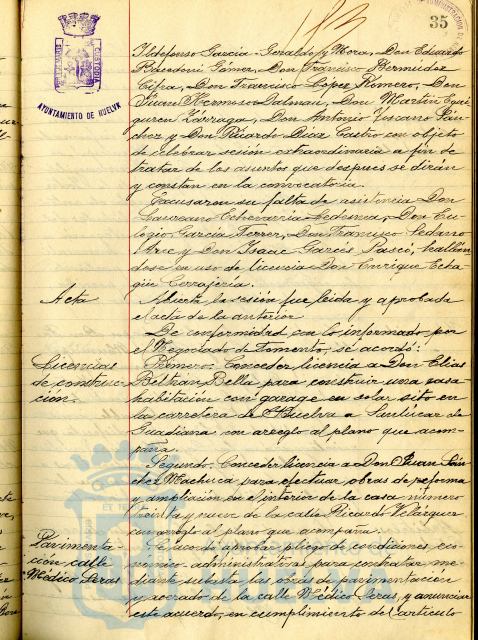 35
AYUNTAMIENTO DE HUELVA
Ildefonso García-Geraldo y Mora, Don Eduardo
Gómez, Don Francisco Bermúdez
Cifra, Don Francisco López Romero, Don
Juan Hermoso Dalmau, Don Martín Egui
guren Zárraga, Don Antonio Viscano Sán
chez y Don Ricardo Díaz Castro con objeto
de celebrar sesión extraordinaria a fin de
tratar de los asuntos que después se dirán
y constan en la convocatoria.
Excusaron su falta de asistencia Don
Laureano Echevarría Ledesma, Don Eu
logio García Ferrer, Don Francisco Sedano
Arce y Don Isaac Garcés Pascó, hallán
dose en uso de licencia Don Enrique Echa
güe Cerrajería.
Acta
Abierta la sesión fue leída y aprobada
el acta de la anterior.
De conformidad con lo informado por
el Negociado de Fomento, se acordó:
Licencias
de construc
ción.
Primero: Conceder licencia a Don Elías
Beltrán Bella para construir una casa
habitación con garage en solar sito en
la carretera de Huelva a Sanlúcar de
Guadiana con arreglo al plano que acom
paña.
Segundo: Conceder licencia a Don Juan Sán
chez Machuca para efectuar obras de reforma
y ampliación en el interior de la casa número
treinta y nueve de la calle Ricardo Velázquez
con arreglo al plano que acompaña.
Pavimenta-
ción calle
Médico Seras
Se acordó aprobar pliego de condiciones eco
nómico-administrativas para contratar me
diante subasta las obras de pavimentación
y acerado de la calle Médico Seras, y anunciar
este acuerdo, en cumplimiento del artículo